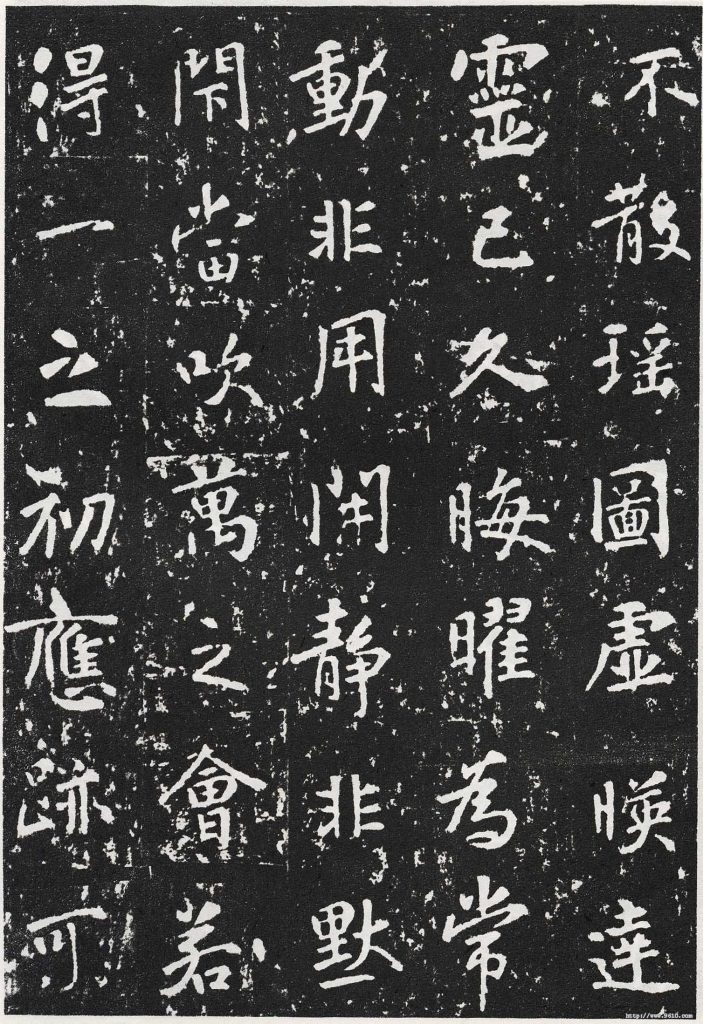 不散瑶圖虛暎達
靈已久晦曜為常
動非用開靜非默
閇當吹萬之會若
得一之初應跡可
http://www.9610.com